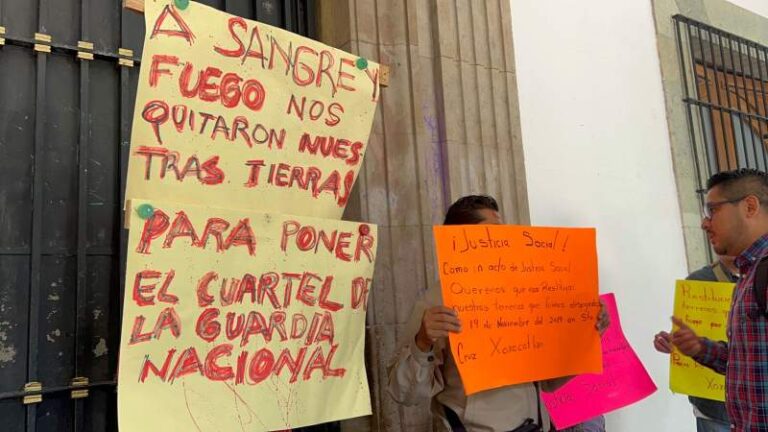 A SANGRE Y
FUEGO NOS
QUITARON NUES
TRAS TIERRAS
PARA PONER
EL CUARTEL DE
LA GUARDIA
NACIONAL
¡Justicia Social!
Como un acto de Justicia Social
Queremos que nos
nuestros terrenos que fuimos
19 de Noviembre del 2019 en Sta
Cruz Xoxocotlan